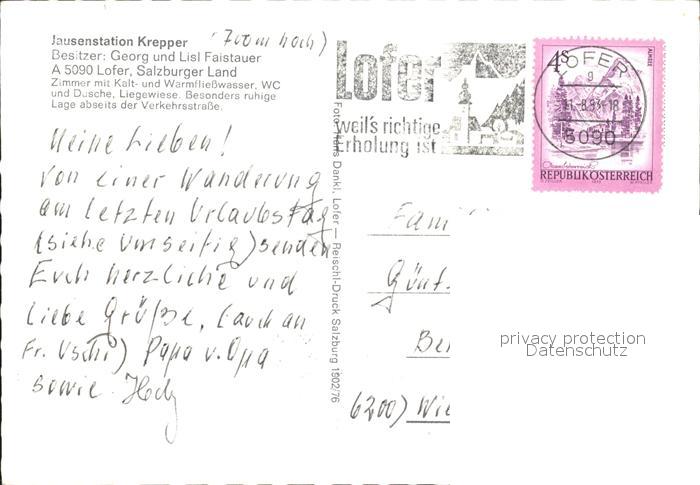 Jausenstation Krepper (700m hoch)
Besitzer: Georg und Lisl Faistauer
A 5090 Lofer, Salzburger Land
Zimmer mit Kalt- und Warmfließwasser, WC
und Dusche, Liegewiese. Besonders ruhige
Lage abseits der Verkehrsstraße.
Meine Lieben!
Von einer Wanderung
am letzten Urlaubstag
(siehe Umseitig) senden
Euch herzliche und
liebe Grüße, (auch an
Fr. Uschi) Papa u. Opa
sowie
Foto Hans Dankl, Lofer — Reischl-Druck Salzburg 1902/76
Lofer
weil's richtige
Erholung ist
4S
ALMSEE
LOFER
5090
REPUBLIK ÖSTERREICH
Fami
Günt.
Ber
6200) Wie
privacy protection
Datenschutz